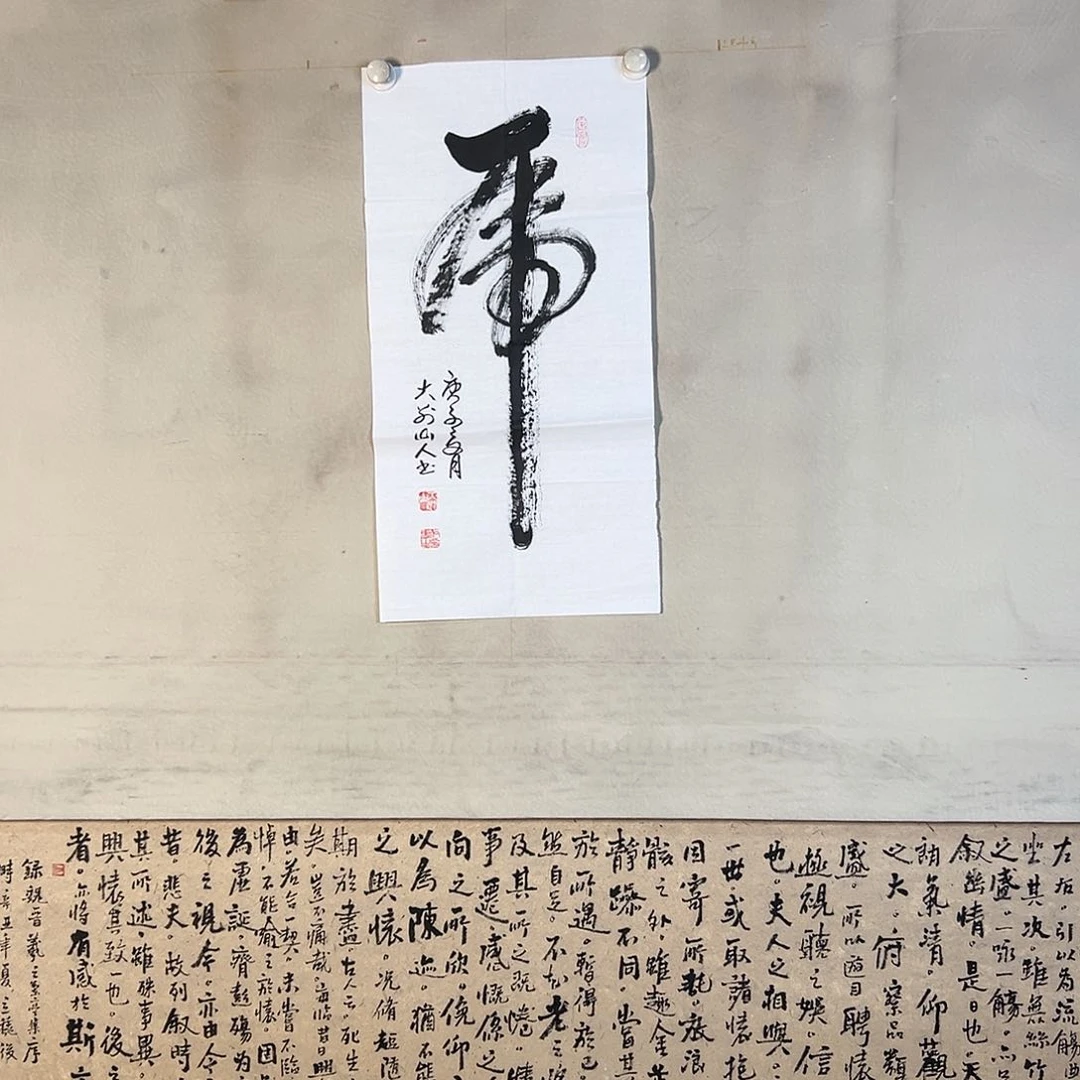 虎
庚子夏月
大别山人书
左右。引以為流觴曲
坐其次。雖無絲竹
之盛。一詠一觴。亦
叙幽情。是日也。天
朗氣清。仰觀
之大。俯察品類
盛。所以遊目聘懷
極視聽之娛。信
也。夫人之相與。
一世。或取諸懷抱
因寄所託。放浪
骸之外。雖趣舍萬
静躁不同。當其
於所遇。暫得於己
然自足。不知老之
及其所之既惓。情
事遷。感慨係之
向之所欣。俛仰
以為陳迹。猶不能
之興懷。况脩短隨
期於盡。古人云。死生
矣。豈不痛哉。每臨昔日興
由。若合一契。未嘗不臨
悼。不能喻之於懷。固
為虛誕。齊彭殤為
後之視今。亦由今
昔。悲夫。故列叙時
其所述。雖殊事異。
興懷其致一也。後之
者。亦將有感於斯
錄魏晉羲之蘭亭集序
時辛丑年夏